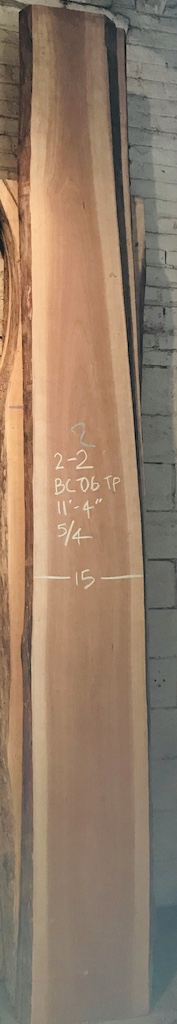 2
2-2
BC06 TP
11'-4"
5/4
15